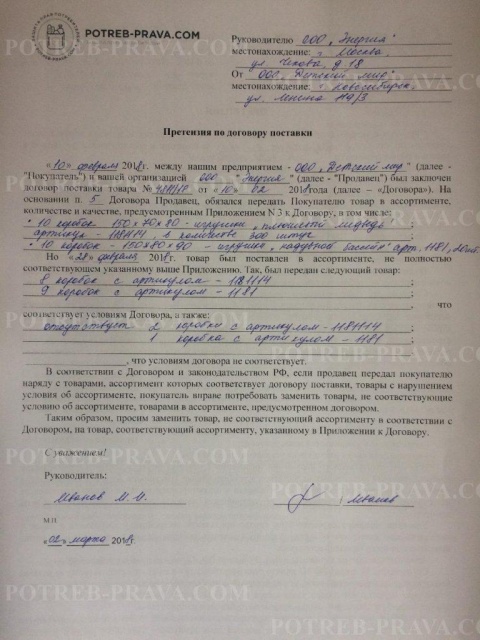 POTREB-PRAVA.COM
Руководителю ООО „Энергия"
местонахождение: г. Москва,
ул. Чехова, д. 18
От ООО „Детский мир"
местонахождение: г. Новосибирск,
ул. Ленина
Претензия по договору поставки
«10» февраля 2018г. между нашим предприятием - ООО „Детский мир" (далее -
"Покупатель") и вашей организацией ООО „Энергия" (далее - "Продавец") был заключен
договор поставки товара № от «10» 02 2018года (далее – «Договора»). На
основании п. 5 Договора Продавец, обязался передать Покупателю товар в ассортименте,
количестве и качестве, предусмотренным Приложением N 3 к Договору, в том числе:
• 10 коробок 150*70*80 - игрушки „плюшевый медведь
артикул - 1181114 в количестве 300 штук ;
• 10 коробок - 150*80*90 - игрушка „надувной бассейн" арт. 1181, 20шт.
Но «28» февраля 2018г. товар был поставлен в ассортименте, не полностью
соответствующем указанному выше Приложению. Так, был передан следующий товар:
8 коробок с артикулом - 1181114 ;
9 коробок с артикулом - 1181 ;
, что
соответствует условиям Договора, а также:
отсутствует 2 коробки с артикулом - 1181114 ;
1 коробка с артикулом - 1181 ;
, что условиям договора не соответствует.
В соответствии с Договором и законодательством РФ, если продавец передал покупателю
наряду с товарами, ассортимент которых соответствует договору поставки, товары с нарушением
условия об ассортименте, покупатель вправе потребовать заменить товары, не соответствующие
условию об ассортименте, товарами в ассортименте, предусмотренном договором.
Таким образом, просим заменить товар, не соответствующий ассортименту в соответствии с
Договором, на товар, соответствующий ассортименту, указанному в Приложении к Договору.
С уважением!
Руководитель:
Иванов И.И. / Иванов
М.П.
«02» марта 2018г.
POTREB-PRAVA.COM
POTREB-PRAVA.COM
POTREB-PRAVA.COM
POTREB-PRAVA.COM